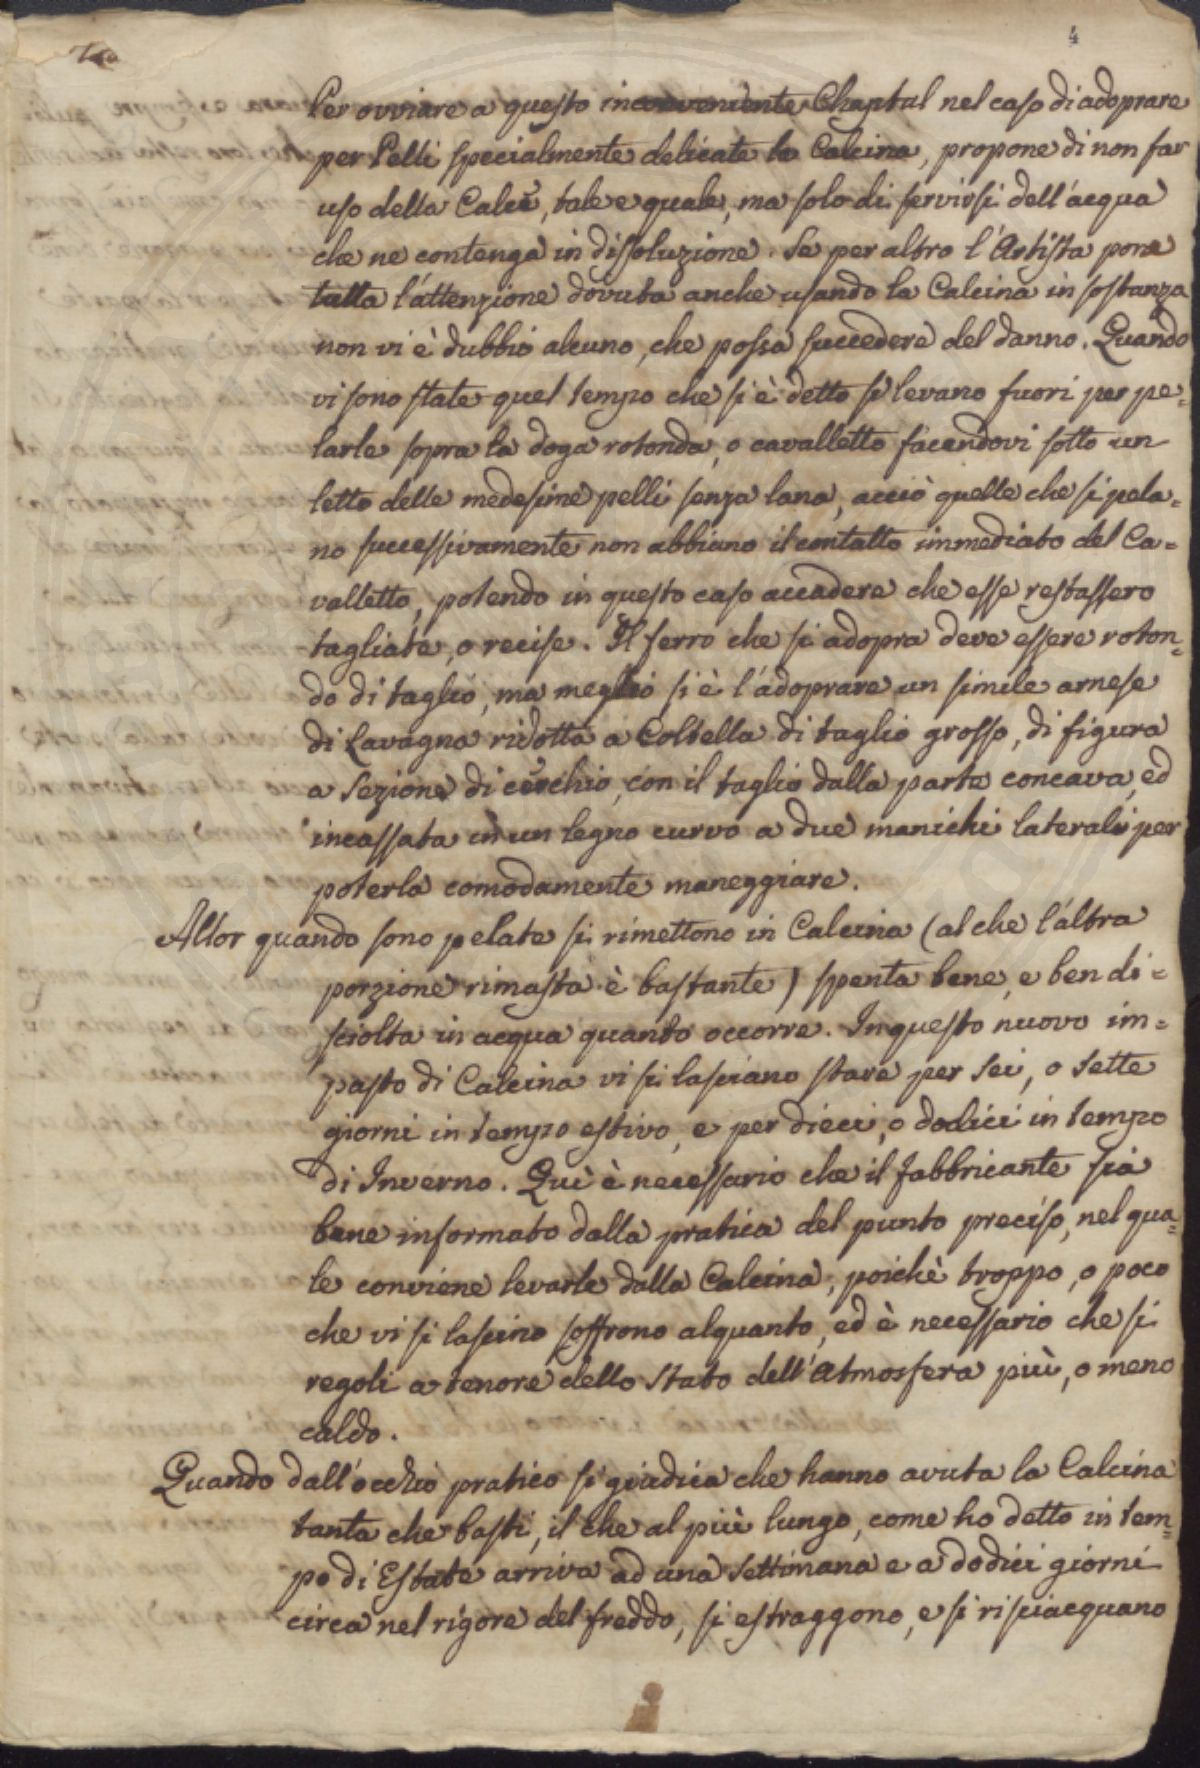 4
Per ovviare a questo inconveniente Chaptal nel caso di adoprare
per Pelli specialmente delicate la Calcina, propone di non far
uso della Calce, tale e quale, ma solo di servirsi dell'acqua
che ne contenga in dissoluzione. Se per altro l'Artista pone
tutta l'attenzione dovuta anche usando la Calcina in sostanza
non vi è dubbio alcuno, che possa succedere del danno. Quando
vi sono state quel tempo che si è detto si levano fuori per pe=
larle sopra la doga rotonda, o cavalletto facendovi sotto un
letto delle medesime pelli senza lana, acciò quelle che si pela=
no successivamente non abbiano il contatto immediato del Ca=
valletto, potendo in questo caso accadere che esse restassero
tagliate, o recise. Il ferro che si adopra deve essere roton=
do di taglio, ma meglio si è l'adoprare un simile arnese
di Lavagna ridotta a Coltella di taglio grosso, di figura
a Sezione di cerchio, con il taglio dalla parte concava, ed
incassata in un legno curvo a due manichi laterali per
poterla comodamente maneggiare.
Allor quando sono pelate si rimettono in Calcina (al che l'altra
porzione rimasta è bastante) spenta bene, e ben di=
sciolta in acqua quanto occorre. In questo nuovo im=
pasto di Calcina vi si lasciano stare per sei, o sette
giorni in tempo estivo, e per dieci, o dodici in tempo
di Inverno. Qui è necessario che il fabbricante sia
bene informato dalla pratica del punto preciso, nel qua=
le conviene levarle dalla Calcina, poichè troppo, o poco
che vi si lascino soffrono alquanto, ed è necessario che si
regoli a tenore dello Stato dell'Atmosfera più, o meno
caldo.
Quando dall'occhio pratico si giudica che hanno avuta la Calcina
tanta che basti, il che al più lungo, come ho detto in tem=
po di Estate arriva ad una Settimana e a dodici giorni
circa nel rigore del freddo, si estraggono, e si risciacquano